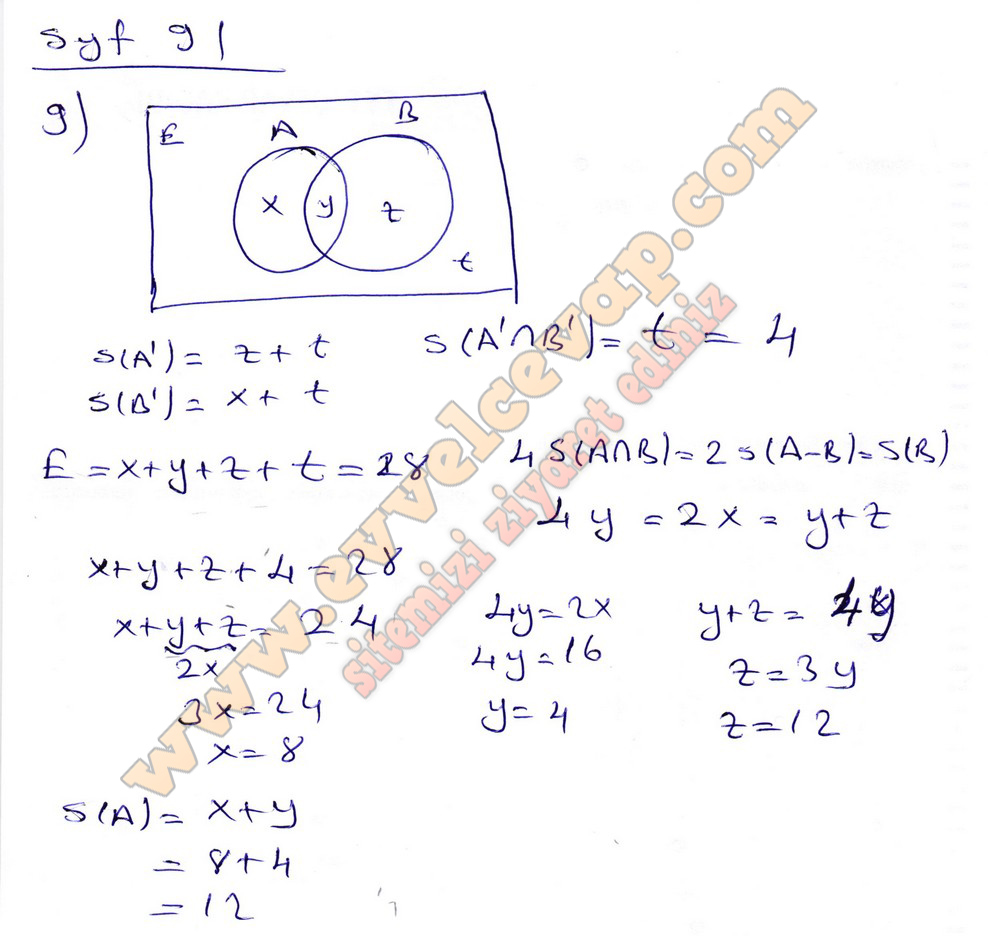 syf 91
9)
E A B
x y z
t
s(A') = z + t
s(B') = x + t
s(A'∩B') = t = 4
E = x+y+z+t = 28
4 s(A∩B) = 2 s(A-B) = s(B)
4y = 2x = y+z
x+y+z+4 = 28
x+y+z = 24
2x
3x = 24
x = 8
4y = 2x
4y = 16
y = 4
y+z = 4y
z = 3y
z = 12
s(A) = x+y
= 8+4
= 12
www.evvelcevap.com
sitemizi ziyaret ediniz